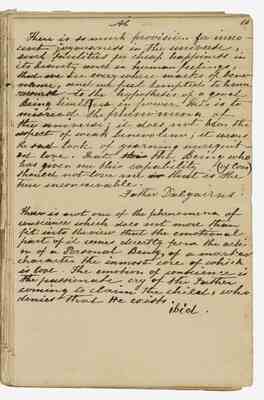 Ab — 10
There is so much provision for inno-
cent joyousness in the universe,
such facilities for cheap happiness in
its beauty and in human feelings,
that we see everywhere marks of bene-
volence, and we feel tempted to have
recourse to the hypothesis of a good
Being limited in power. This is to
misread the phenomena of
this universe; it does not bear the
aspect of weak benevolence; it wears
the sad look of yearning
love. That the Being who
has given me this capability (of love)
should not love me in that is the
one inconceivable.
Father Dalgairns.
There is not one of the phenomena of
conscience which does not more than
fit into the view that the emotional
part of it comes directly from the acti-
on of a Personal Being, of a
character the inmost core of which
is love. The emotion of conscience is
the passionate cry of the Father
coming to claim the child, who
denies that He exists.
ibid.